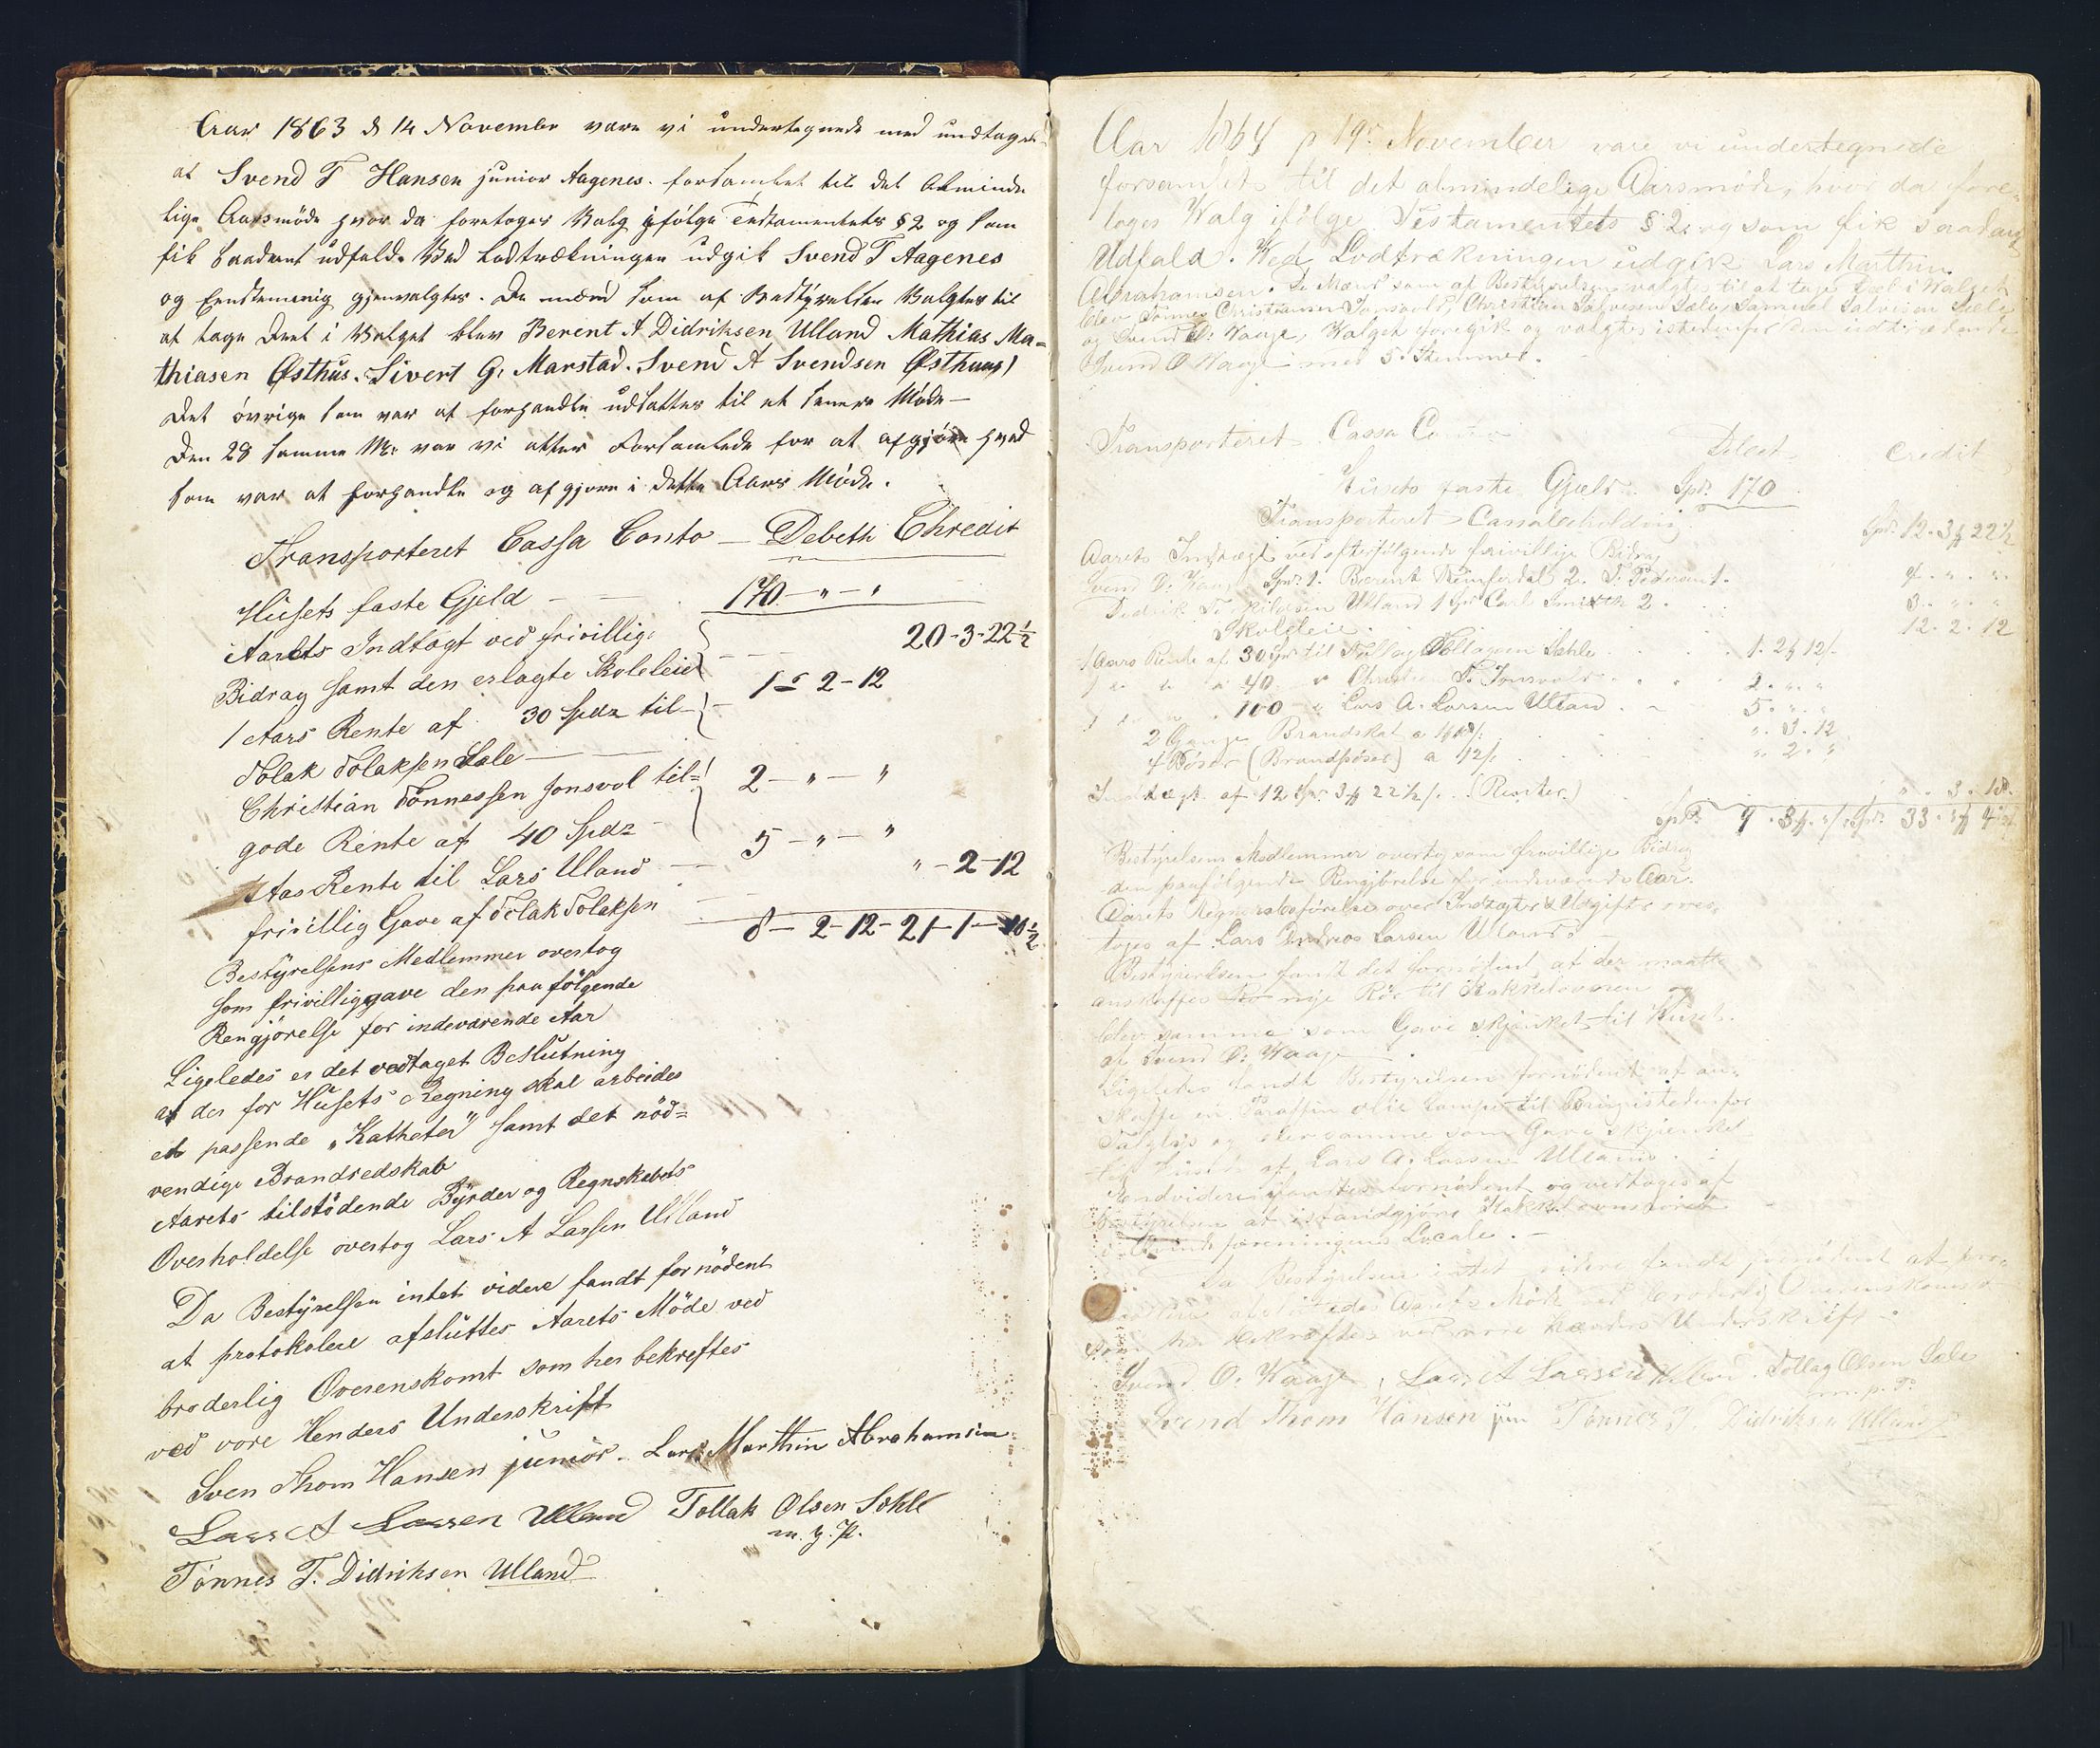 Aar 1863 d 14 November vare vi undertegnede med undtagel-
at Svend T Hansen junior Aagenes. forsamlet til det alminde
lige Aarsmöde hvor da foretoges Valg ifölge Testamentets § 2 og som
fik saadant udfald. Ved Lodtrækningen udgik Svend T Aagenes
og Eenstemmig gjenvalgtes. De mænd som af Bestÿrelsen Valgtes til
at tage Deel i Valget blev Berent A. Didriksen Ulland Mathias Ma=
thiasen Østhus. Sivert G. Marstad. Svend A Svendsen Østhuus)
Det övrige som var at forhandle udsattes til et senere Möde —
Den 28 samme M: var vi atter Forsamlede for at afgjöre hvad
som var at forhandle og afgjöre i dette Aars Möde.
Transporteret Cassa Conto — Debeth Chredit
Hüsets faste Gjeld — 170 — " — "
Aarets Indtögt ved frivillige
Bidrag samt den erlagte Skoleleie 20-3-22½
1 Aars Rente af 30 Spdr til 1 — 2 — 12
Tolak Tolaksen Sale
Christian Tönnessen Jonsvol til=
gode Rente af 40 Spdr 2 — " — "
Aas Rente til Lars Uland 5 — " — "
frivillig Gave af Tolak Tolaksen " — 2 — 12
8 — 2 — 12 — 21 — 1 — 10½
Bestÿrelsens Medlemmer overtog
som frivillig gave den paa fölgende
Rengjörelse for indeværende Aar
Ligeledes er det vedtaget Beslütning
at der for Hüsets Regning skal arbeides
et passende „Katheter" samt det nöd=
vendige Brandredskab
Aarets tilstödende Bÿrder og Regnskabets
Overholdelse overtog Lars A Larsen Ulland
Da Bestÿrelsen intet videre fandt fornödent
at protokolere afslüttes Aarets Möde ved
broderlig Overenskomt som her bekreftes
ved vore Henders Underskrift
Sven Thom Hansen junior. Lars Marthin Abrahamsen
Lars A Larsen Ulland Tollak Olsen Sohle
m. f. P.
Tönnes T. Didriksen Ulland
Aar 1864 p 19. November vare vi undertegnede
forsamlet til det almindelige Aarsmöde, hvor da fore-
toges Valg ifölge Testamentets § 2. og som fik saadant
Udfald. Ved Lodtrækningen udgik Lars Marthin
Abrahamsen. De Mænd som af Bestyrelsen valgtes til at tage Deel i Valget
blev Tönnes Christiansen Jonsvold, Christian Salvesen Sæle, Samuel Salvesen Sæle
og Svend O. Vaage, Valget foregik og valgtes istedenfor den udtrædende
Svend O Vaage med 5 Stemmer.
Transporteret Cassa Conto Debet Credit
Husets faste Gjæld Spd. 170
Transporteret Cassabeholdning Spd. 12. 3 22½
Aarets Indtægt ved efterfölgende frivillige Bidrag
Svend O. Vaage Spd. 1. Berent 2. T. Pedersen 1. 4. " "
Didrik Ulland 1 Spd Carl Smith 2. 3. " "
Skoleleie 12. 2. 12
1 Aars Rente af 30 Spd til Tollag Tollagsen Sæhle 1. 2 12
1 " " 40 " Christian T. Jonsvold 2. " "
1 " " 100 " Lars A. Larsen Ulland 5. " "
2 Gange Brandskat ". 3. 12
4 Pöser (Brandpöser) a 12 ". 2. "
Indtægt af 12 Spd. 3 22½ (Renter) ". 3. 18
Spd. 9. 3. Spd. 33. 4
Bestÿrelsens Medlemmer overtog som frivillige Bidrag
den paafölgende Rengjörelse for indeværende Aar.
Aarets Regnskabsförelse over Indtægter & Udgifter over
toges af Lars Andreas Larsen Ulland.
Bestyrelsen fandt det fornödent at der maatte
anskaffes nye Rör til Kakkelovnen og
blev samme som Gave skjænket til Huset
af Svend O. Vaage
Ligeledes fandt Bestyrelsen fornödent at an-
skaffe en Paraffin Lampe til Brug istedenfor
Talglys og blev samme som Gave skjænket
af Lars A. Larsen Ulland.
Endvidere fandtes fornödent og vedtoges af
Bestyrelsen at istandgjöre Kakkelovnsrören
i Qvindeforeningens Locale.
Da Bestÿrelsen intet videre fandt fornödent at pro-
tokolere afsluttedes Aarets Möde ved broderlig Overenskomst
som her bekræftes ved vore hænders Underskrift
Svend O. Vaage, Lars A Larsen Ulland. Tollag Olsen Sæle
m. f. P.
Svend Thom Hansen jun Tönnes T Didriksen Ulland